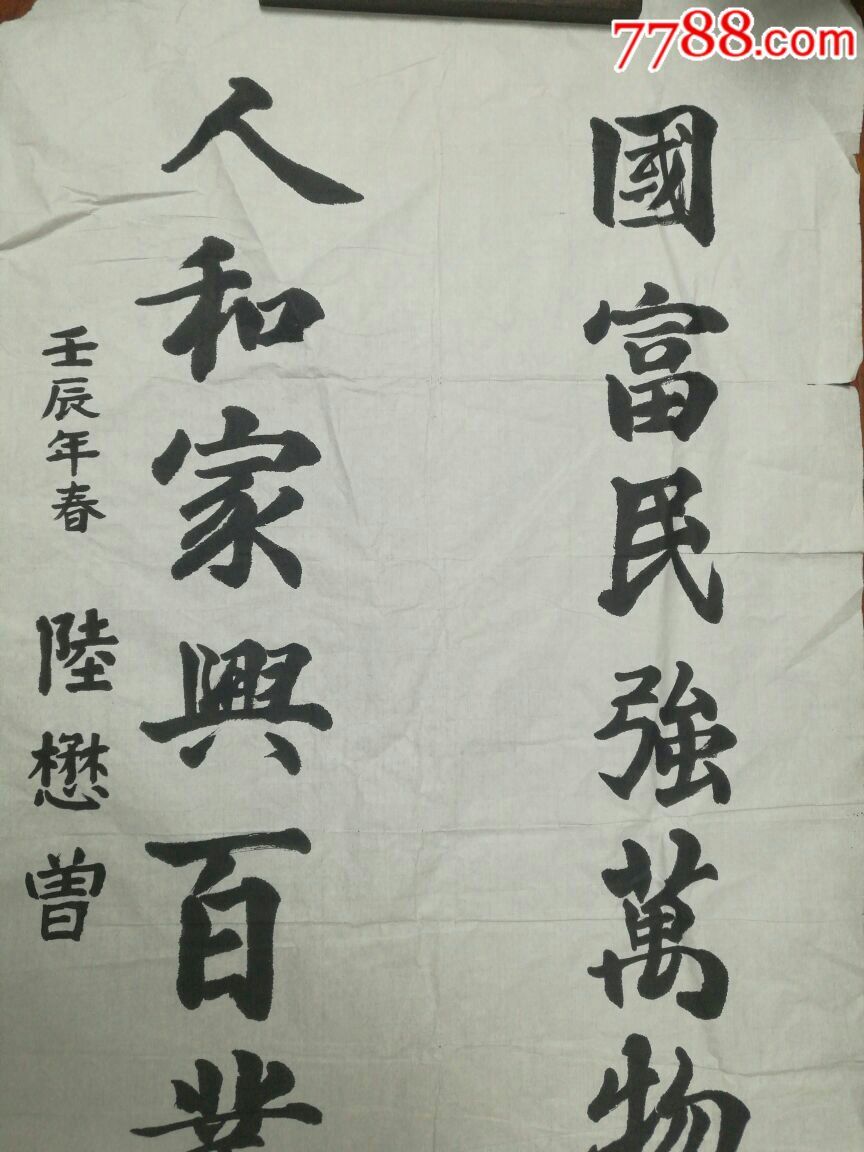 7788.com
國富民強萬物
人和家興百業
壬辰年春
陸懋曽